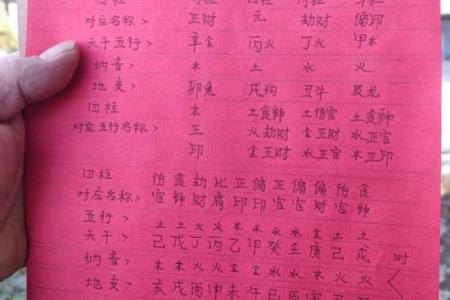 对应名称 > 正财 元 劫财 偏印
天干五行 > 辛金 丙火 丁火 甲木
纳音 > 木 土 水 火
地支 > 卯兔 戌狗 丑牛 辰龙
四柱 木 土食神 土伤官 土食神
对应五行名称 > 正 火劫财 金正财 水正官
印 金正财 水正官 木正印
四柱 伤 食 劫 比 正 偏 正 偏 伤 食
对应名称 > 官 神 财 肩 印 印 官 财 官 神
五行 > 土 土 火 火 木 木 水 水 土 土
天干 > 己 戊 丁 丙 乙 甲 癸 壬 己 戊
纳音 > 木 木 火 火 金 金 水 水 火 火
地支 > 亥 戌 酉 申 未 午 巳
时